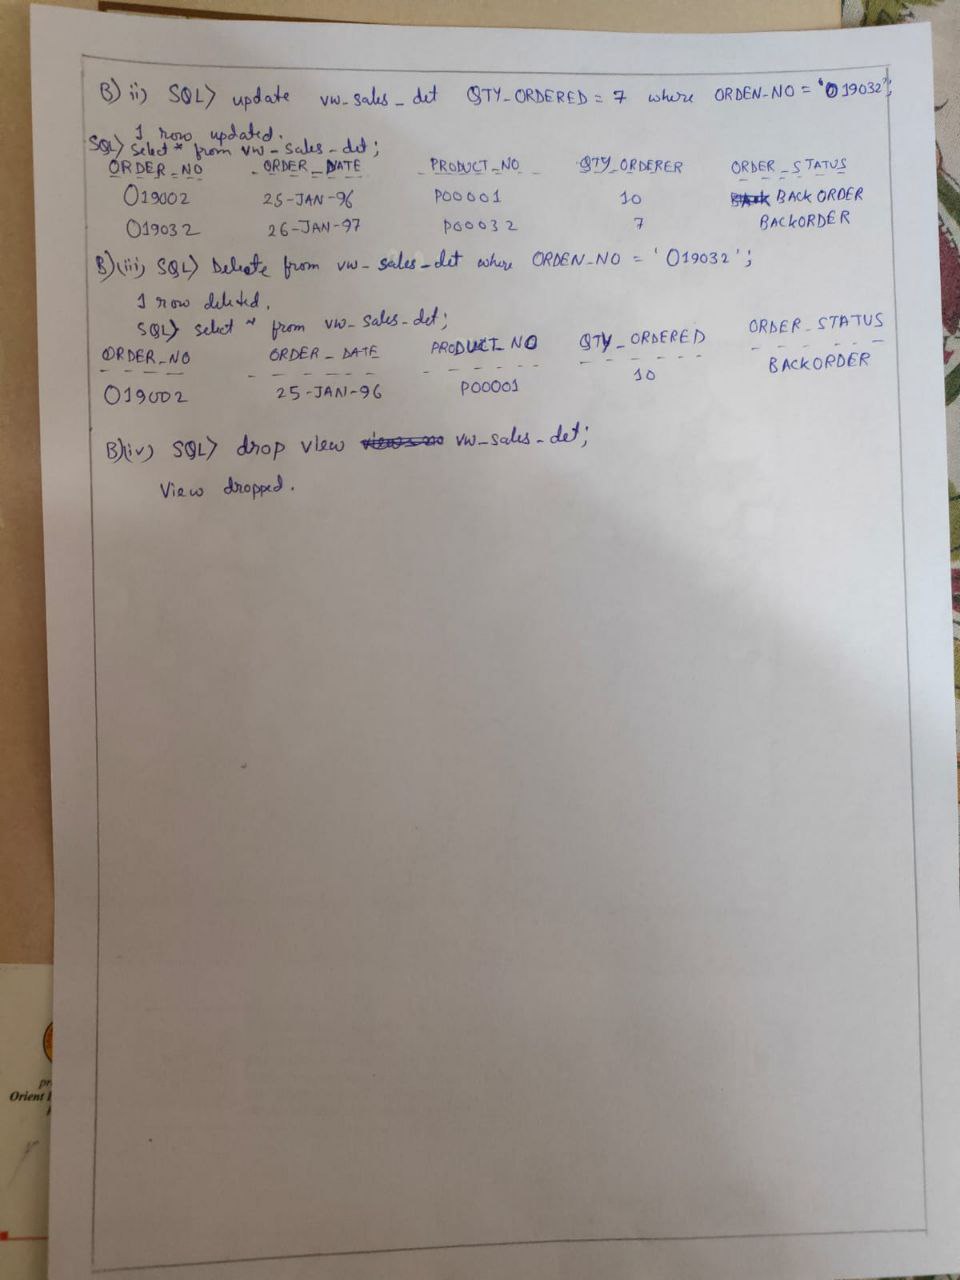 B) ii) SQL> update vw_sales_det QTY_ORDERED = 7 where ORDEN_NO = '019032';
1 row updated.
SQL> select * from vw_sales_det;
ORDER_NO ORDER_DATE PRODUCT_NO QTY_ORDERER ORDER_STATUS
019002 25-JAN-96 P00001 10 BACKORDER
019032 26-JAN-97 P00032 7 BACKORDER
B)(iii) SQL> Delete from vw_sales_det where ORDEN_NO = '019032';
1 row deleted.
SQL> select * from vw_sales_det;
ORDER_NO ORDER_DATE PRODUCT_NO QTY_ORDERED ORDER_STATUS
019002 25-JAN-96 P00001 10 BACKORDER
B)(iv) SQL> drop view vw_sales_det;
View dropped.
Orient